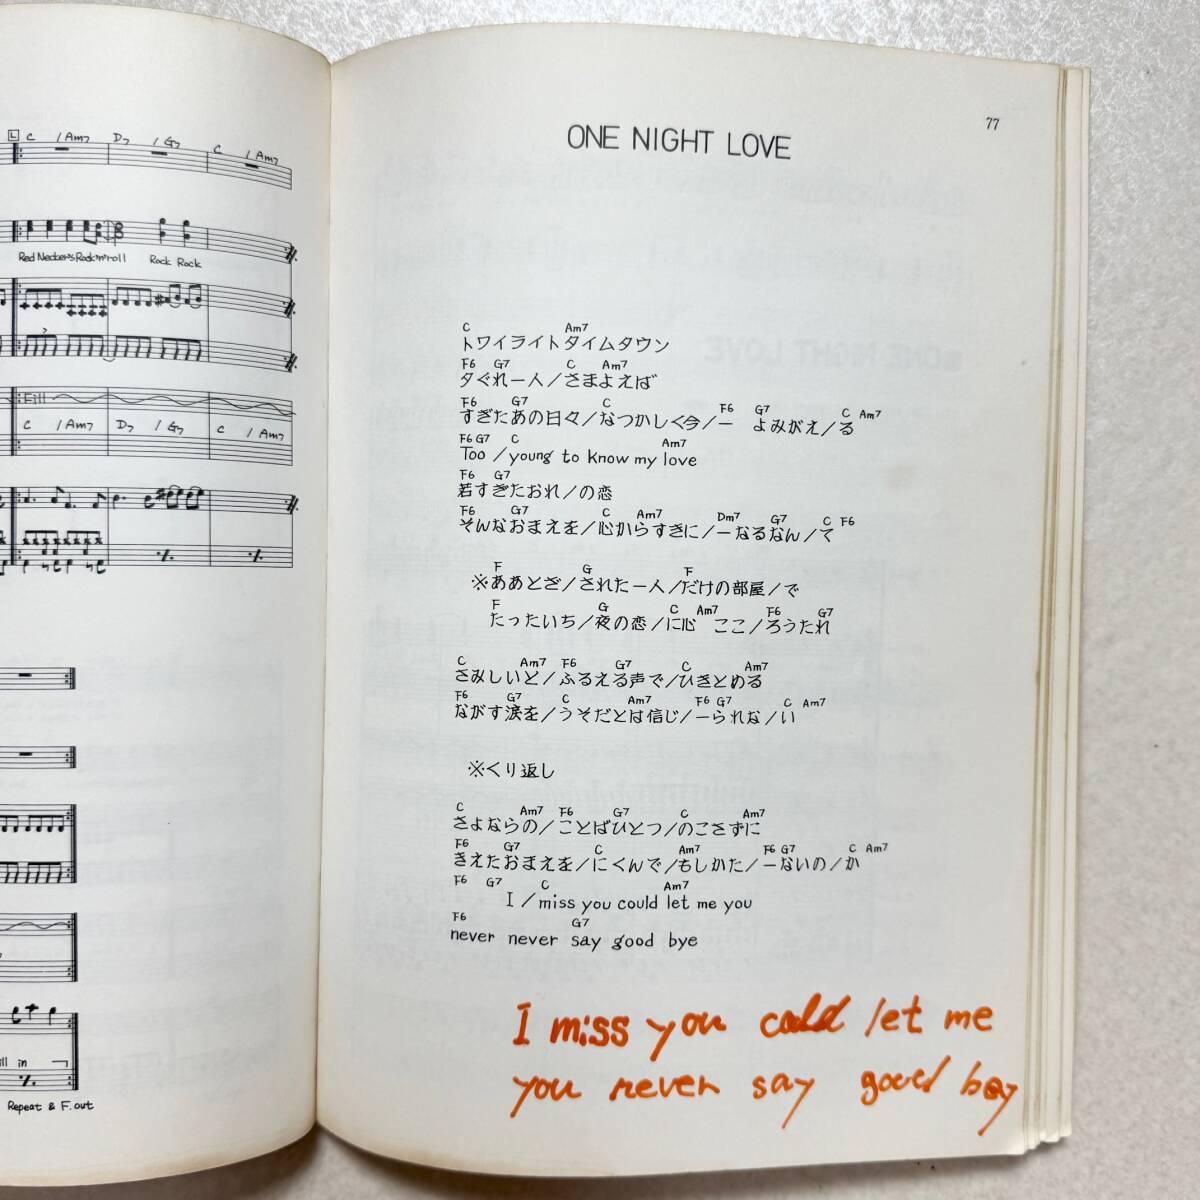 L C / Am7 D7 / G7 C / Am7
Red Necker's Rock'n'roll Rock Rock
Fill
C / Am7 D7 / G7 C / Am7
ill in
Repeat & F. out
77
ONE NIGHT LOVE
C Am7
トワイライトタイムタウン
F6 G7 C Am7
夕ぐれ一人/さまよえば
F6 G7 C F6 G7 C Am7
すぎたあの日々/なつかしく今/ー よみがえ/る
F6 G7 C Am7
Too / young to know my love
F6 G7
若すぎたおれ/の恋
F6 G7 C Am7 Dm7 G7 C F6
そんなおまえを/心からすきに/ーなるなん/て
F G F
※ああとざ/された一人/だけの部屋/で
F G C Am7 F6 G7
たったいち/夜の恋/に心 ここ/ろうたれ
C Am7 F6 G7 C Am7
さみしいと/ふるえる声で/ひきとめる
F6 G7 C Am7 F6 G7 C Am7
ながす涙を/うそだとは信じ/ーられな/い
※くり返し
C Am7 F6 G7 C Am7
さよならの/ことばひとつ/のこさずに
F6 G7 C Am7 F6 G7 C Am7
きえたおまえを/にくんで/もしかた/ーないの/か
F6 G7 C Am7
I / miss you could let me you
F6 G7
never never say good bye
I miss you could let me
you never say good bey